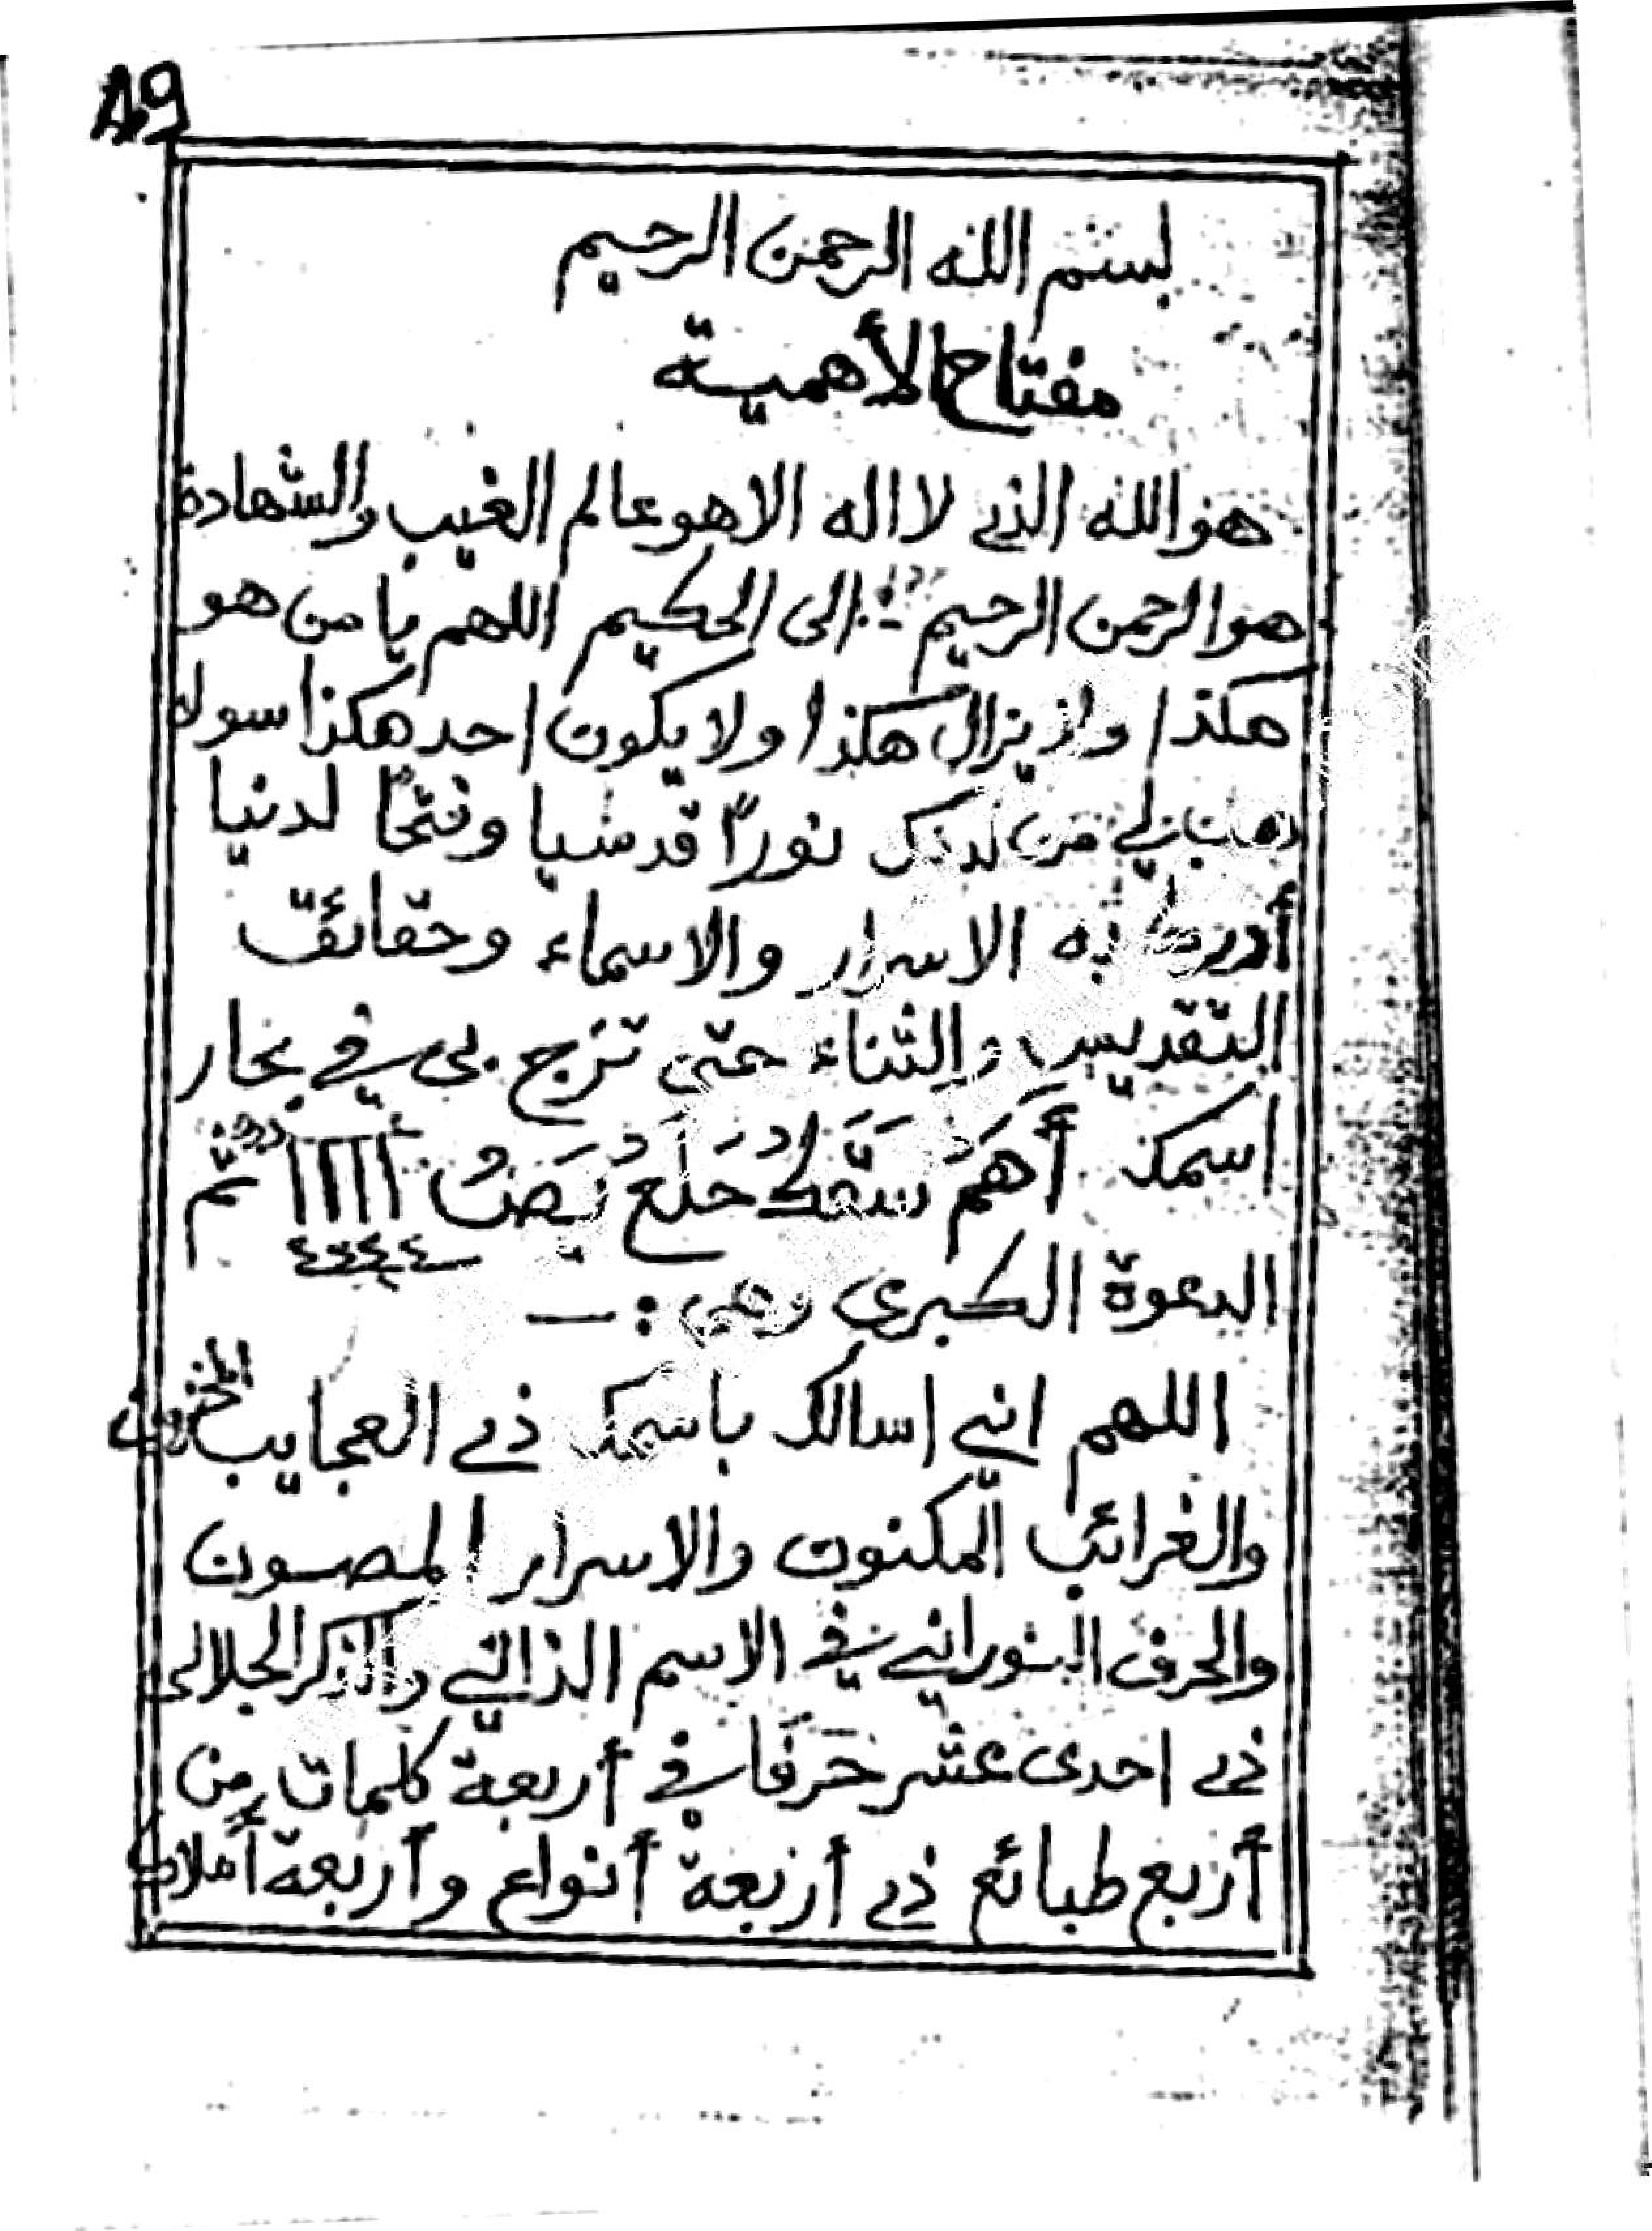 ٨٩
بسم الله الرحمن الرحيم
مفتاح الأهمية
هو الله الذي لا اله الا هو عالم الغيب والشهادة
هو الرحمن الرحيم إلى الحكيم اللهم يا من هو
هكذا ولا يزال هكذا ولا يكون احد هكذا سواه
هب لي من لدنك نوراً قدسيا وفتحاً لدنيا
أدرك به الاسرار والاسماء وحقائق
التقديس والثناء حتى تزج بي في بحار
اسمك أَهَمٌ سَقَكٌ حَلَعٌ يَصٌ ااااا ثم
الدعوة الكبرى وهي :ـــ
اللهم اني اسالك باسمك ذي العجايب المخزون
والغرائب المكنون والاسرار المصون
والحرف النوراني في الاسم الذاتي والذكر الجلالى
ذي احدى عشر حَرفًا في أربعة كلمات من
أربع طبائع ذي أربعة أنواع وأربعة أملاك